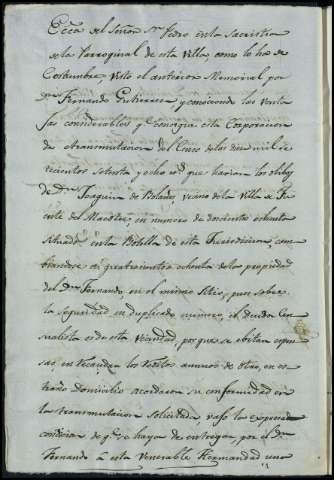 Ecca del Señor Sn Pedro en la Sacristia
de la Parroquial de esta Villa como lo ha de
Costumbre visto el anterior Memorial por
Dn Fernando Gutierrez y conociendo las venta
jas considerables qe consigue esta Corporacion
de transmutacion del Censo de los dos mil se
recientos setenta y ocho rs que hacian los olibos
de Dn Joaquin de Bolaños, vecino de la Villa de Fu
ente del Maestre, en numero de doscientos ochenta
situados en la Botilla de esta Jurisdiccion, con
quatrocientos ochenta de los propiedad
del Dn Fernando, en el mismo Sitio, pues sobre
la seguridad en duplicado numero, el deudor Cen
sualista es de esta vecindad, por que se evitan expen
sas, en recaudar los reditos anuos de otro, en es
traño domicilio acordaron su conformidad en
la transmutacion solicitada vajo la expresa
condicion de qe se haya de entregar, por el Dn
Fernando á esta Venerable Hermandad una